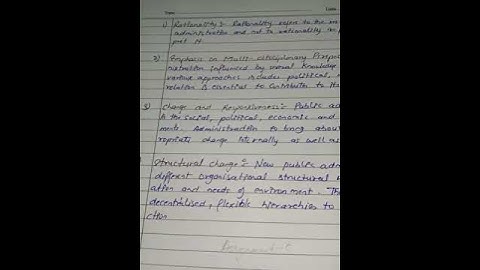 1) Rationality :- Rationality refers to the
administration and not to rationality
2) Emphasis on Multi-disciplinary
influenced by several knowledge
various approaches includes political,
relation & essential to contribute to its
3) Change and Responsiveness :- Public ad
& the social, political, economic and
ments. Administration to bring about
ropriate change internally as well as
Structural change :- New public adm
different organisational structural
ation and needs of environment. The
decentralised, flexible hierarchies to
ction